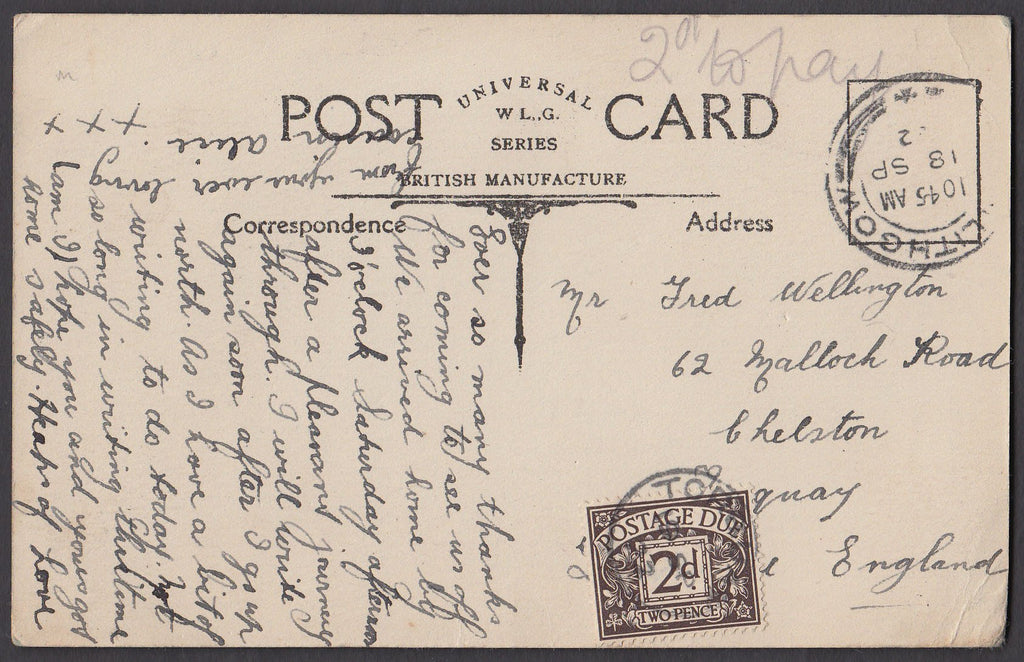 2d to pay
POST CARD
UNIVERSAL
W L.. G.
SERIES
BRITISH MANUFACTURE
Correspondence
Address
LITHGOW
1045 AM
18 SP
2
Mr Fred Wellington
62 Malloch Road
Chelston
quay
England
TO
POSTAGE DUE
2d
TWO PENCE
Ever so many thanks
for coming to see us off
We arrived home by
1 o'clock Saturday afternoon
after a pleasant journey
through. I will write
again soon after I go up
north. As I have a bit of
writing to do today. Not
so long in writing this time
am I) hope you and yours got
home safely. Heaps of Love
from your ever loving
cousin
x x x